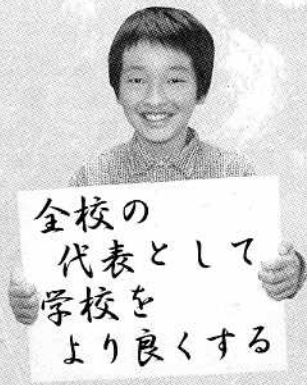 全校の
代表として
学校を
より良くする